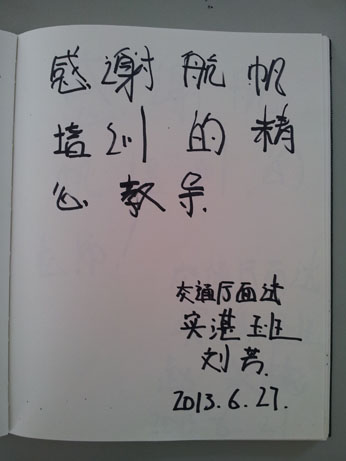 感谢航帆
培训的精
心教导
交通厅面过
实湛班
刘芳.
2013.6.27.